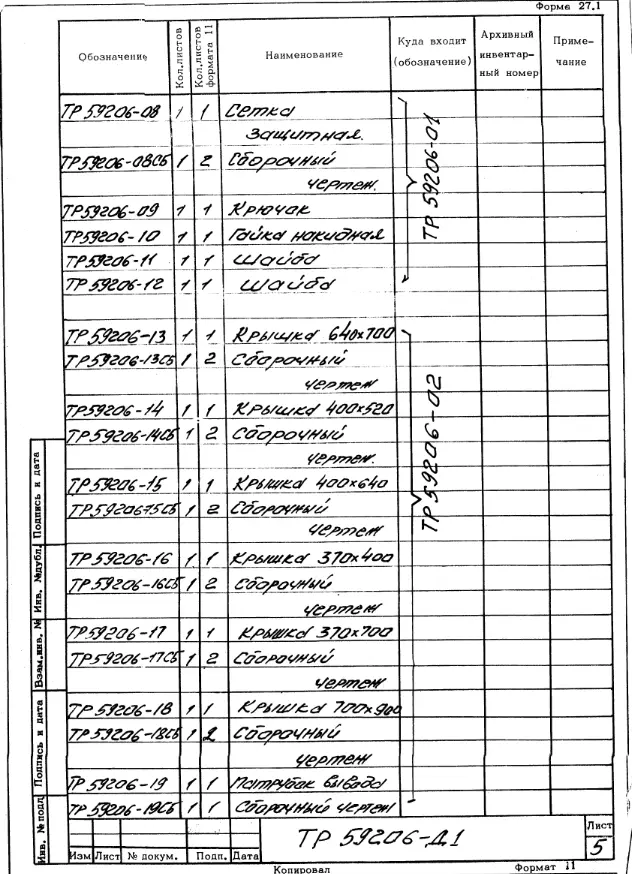 Форма 27.1
Обозначение Кол.листов Кол.листов формата 11 Наименование Куда входит (обозначение) Архивный инвентарный номер Примечание
ТР 59206-08 1 1 Сетка
защитная.
ТР59206-08СБ 1 2 Сборочный
чертеж.
ТР59206-09 1 1 Крючок
ТР59206-10 1 1 Гайка накидная
ТР59206-11 1 1 Шайба
ТР 59206-12 1 1 Шайба
ТР 59206-01
ТР59206-13 1 1 Крышка 640х700
ТР59206-13СБ 1 2 Сборочный
чертеж
ТР59206-14 1 1 Крышка 400х520
ТР59206-14СБ 1 2 Сборочный
чертеж.
ТР59206-15 1 1 Крышка 400х640
ТР5920615СБ 1 2 Сборочный
чертеж
ТР59206-16 1 1 Крышка 370х400
ТР59206-16СБ 1 2 Сборочный
чертеж
ТР59206-17 1 1 Крышка 370х700
ТР59206-17СБ 1 2 Сборочный
чертеж
ТР59206-18 1 1 Крышка 700х900
ТР59206-18СБ 1 2 Сборочный
чертеж
ТР 59206-19 1 1 Патрубок вывода
ТР 59206-19СБ 1 1 Сборочный чертеж
ТР 59206-02
Подпись и дата
Инв. №дубл.
Взам.инв. №
Подпись и дата
Инв. №подл
Изм Лист № докум. Подп. Дата
ТР 59206-Д1
Лист
5
Копировал Формат 11